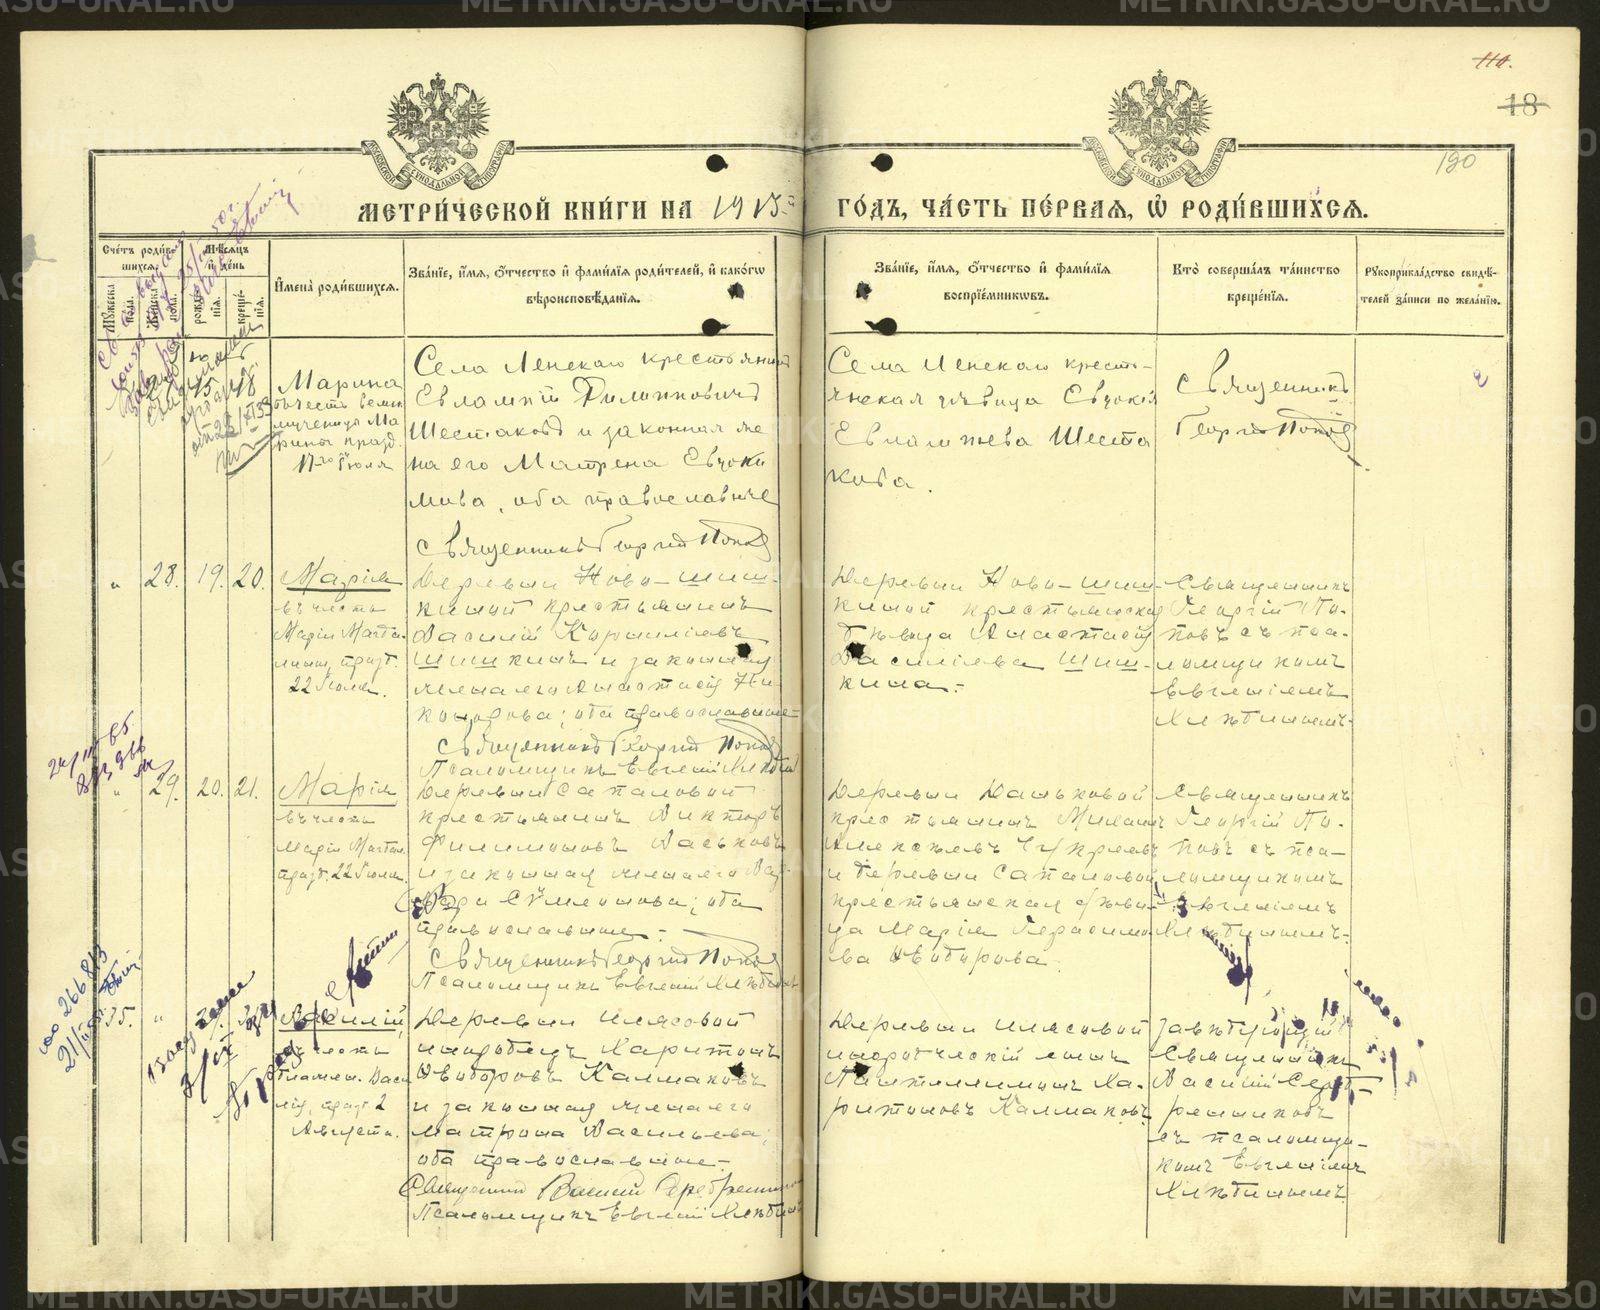 110.
18
190
МЕТРИ́ЧЕСКОЙ КНИ́ГИ НА 1915 й ГО́ДЪ, ЧА́СТЬ ПЕ́РВАЯ, Ѡ РОДИ́ВШИХСЯ.
Сче́тъ роди́вшихся.
Мѣ́сяцъ и҆ де́нь
Му́жеска по́ла.
Же́нска по́ла.
рожде́нїя.
креще́нїя.
И҆мена̀ роди́вшихся.
Зва́нїе, и҆́мя, ѻ҆́тчество и҆ фами́лїя роди́телей, и҆ како́гѡ
вѣроисповѣ́данїя.
Зва́нїе, и҆́мя, ѻ҆́тчество и҆ фами́лїя
воспрїе́мникѡвъ.
Кто̀ соверша́лъ та́инство
креще́нїя.
Рукоприкла́дство свидѣ́-
телей за́писи по жела́нїю.
15 18
Марина
въ честь велик
мученицы Ма
рины празд.
17го Іюля
Села Ленскаго крестьянинъ
Евлампій Филиппович
Шестаковъ и законная же
на его Матрена Евдоки
мова, оба православные
Священникъ Георгій Поповъ
Села Ленскаго кресть-
янская дѣвица Евдокія
Евлампіева Шеста
кова.
Священникъ
Георгій Поповъ
" 28. 19. 20.
Марія
въ честь
Маріи Магда-
лины, празд.
22 Іюля.
Деревни Ново-Шиш-
киной крестьянинъ
Василій Корниліевъ
Шишкинъ и законная
жена его Анастасія Ни-
конорова; оба православные-
Священникъ Георгій Поповъ
Псаломщикъ Евгеній Хлѣбинъ
Деревни Ново-Шиш-
киной крестьянская
дѣвица Анастасія
Василіева Шиш-
кина.-
Священникъ
Георгій По-
повъ съ пса-
ломщикомъ
Евгеніемъ
Хлѣбинымъ-
" 29. 20. 21.
Марія
въ честь
Маріи Магдал.
празд. 22 Іюля.
Деревни Сапаловой
крестьянинъ Викторъ
Филимоновъ Васьковъ
и законная жена его Вар-
вара Сумеонова; оба
православные.-
Священникъ Георгій Поповъ
Псаломщикъ Евгеній Хлѣбинъ
Деревни Даньковой
крестьянинъ Михаилъ
Алексѣевъ Чукреевъ
и деревни Сапаловой
крестьянская дѣви-
ца Марія Герасимо-
ва Ѳедорова.
Священникъ
Георгій По-
повъ съ пса-
ломщикомъ
Евгеніемъ
Хлѣбинымъ-
35. "
Василій,
въ честь
блажен. Васи
лія, празд. 2
Августа.
Деревни Илясовой
инородецъ Харитонъ
Ѳедоровъ Калмаковъ
и законная жена его
Матрона Васильева;
оба православные.-
Священникъ Василій Серебренниковъ
Псаломщикъ Евгеній Хлѣбинъ
Деревни Илясовой
инородческій сынъ
Пантелеимонъ Ха-
ритоновъ Калмаковъ.
Завѣдующій
Священникъ
Василій Сереб-
ренниковъ
съ псаломщи-
комъ Евгеніемъ
Хлѣбинымъ.